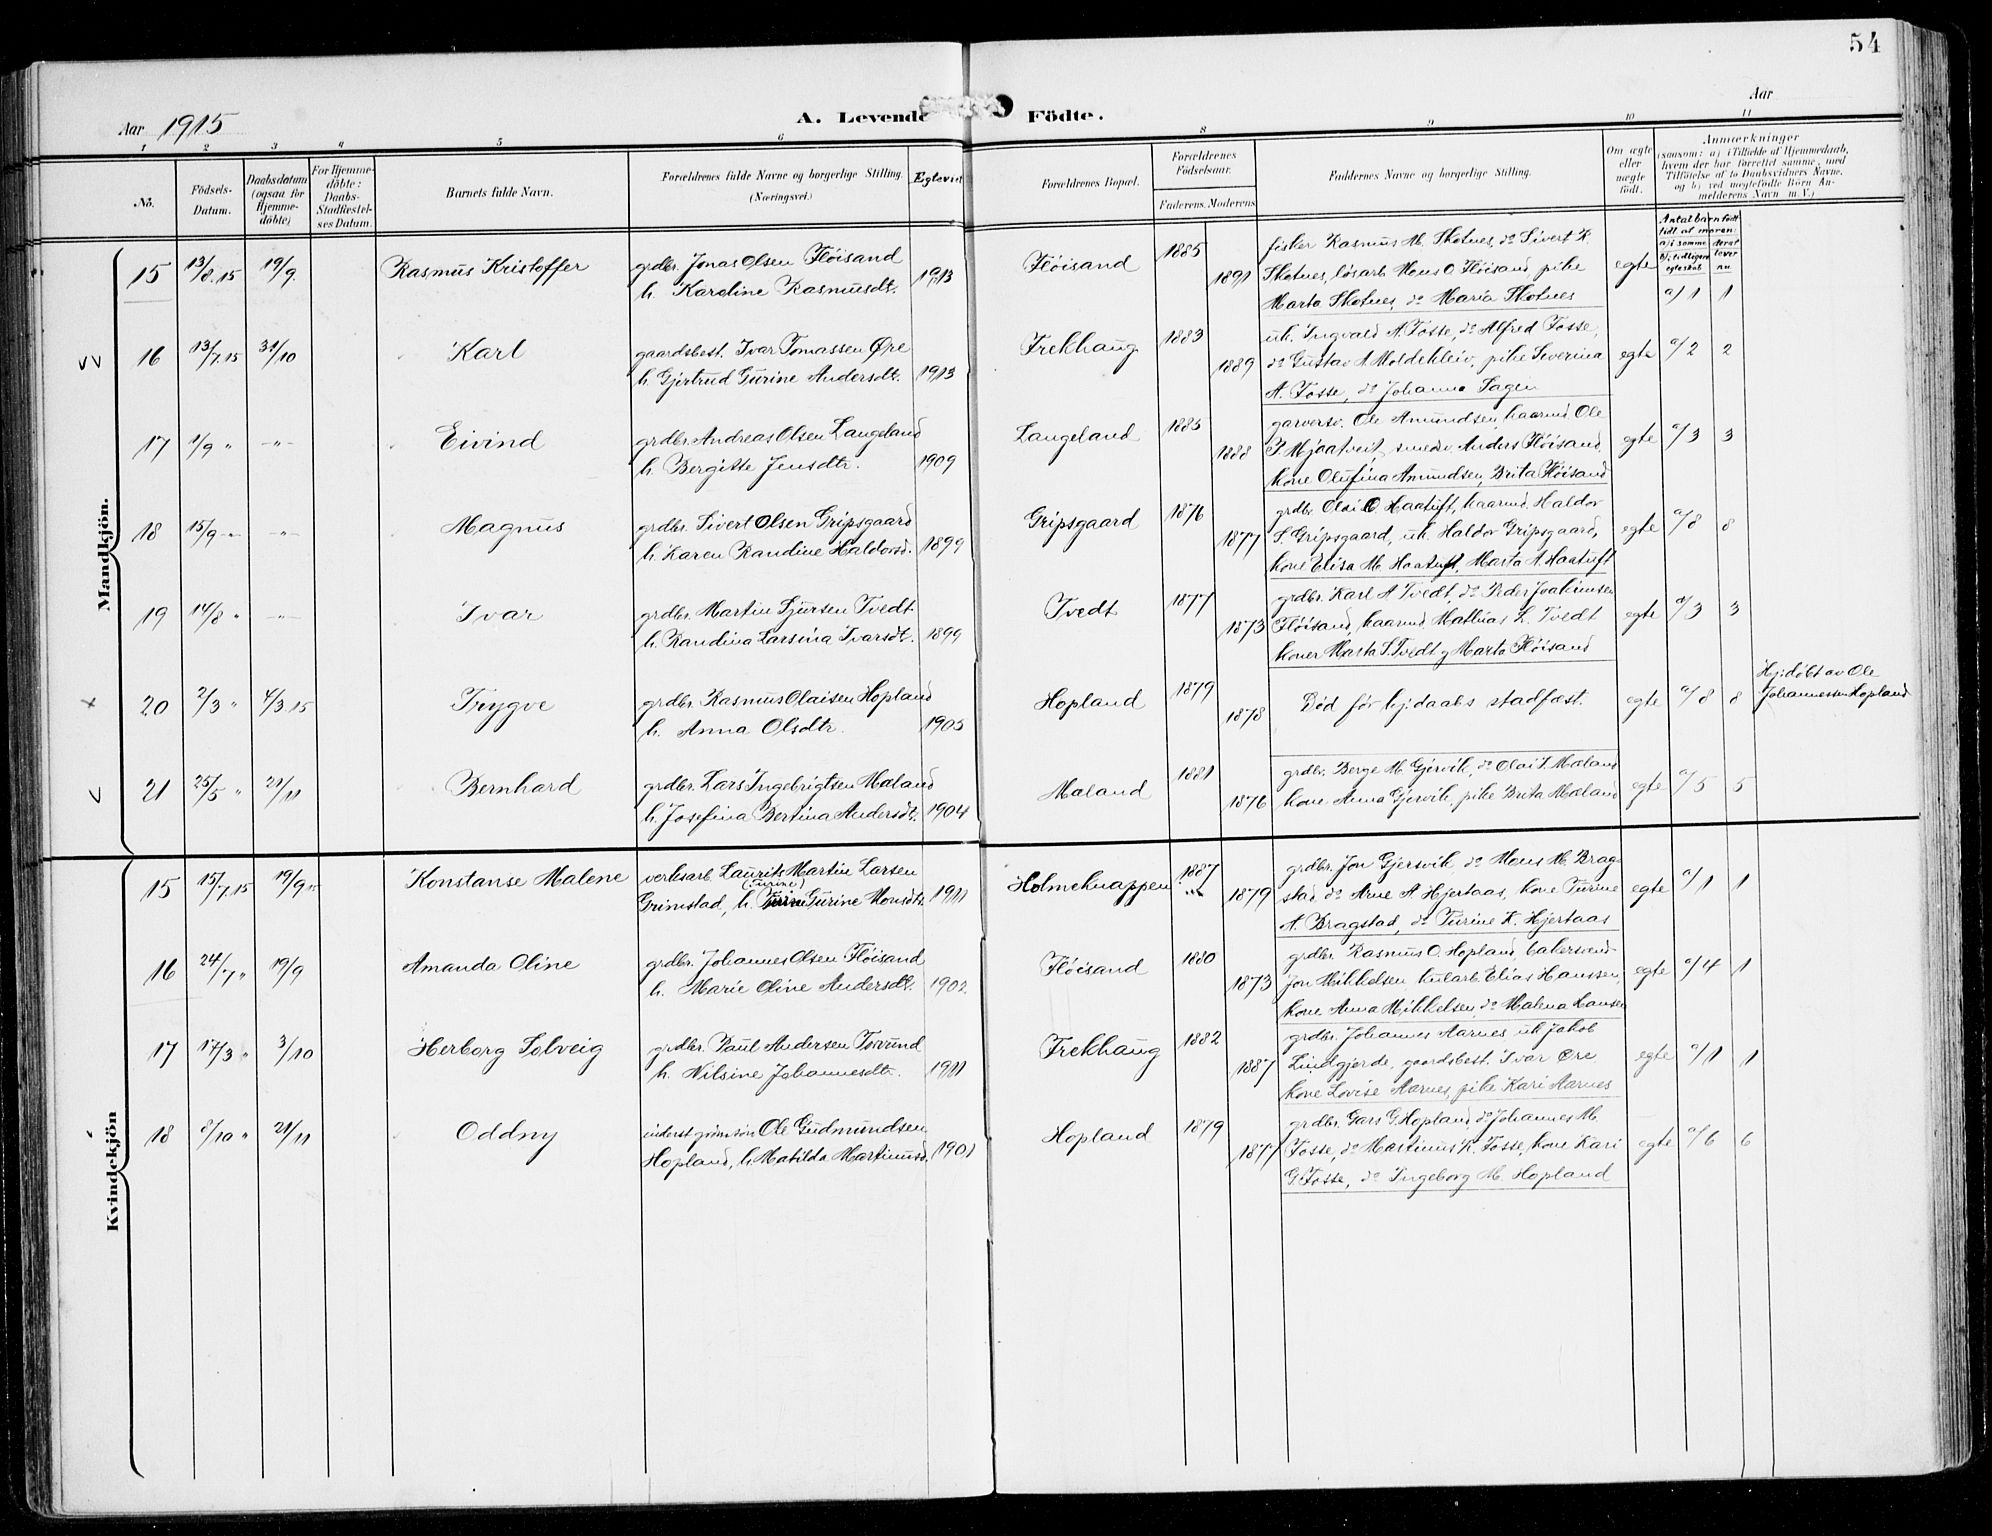 54
Aar 1915
A. Levende Födte.
Aar
1 2 3 4 5 6 8 9 10 11
No.
Födsels-Datum.
Daabsdatum (ogsaa for Hjemme-döbte)
For Hjemme-döbte: Daabs-Stadfæstel-ses Datum.
Barnets fulde Navn.
Forældrenes fulde Navne og borgerlige Stilling. (Næringsvei.)
Egteviet
Forældrenes Bopæl.
Forældrenes Födselsaar.
Faderens. Moderens
Faddernes Navne og borgerlige Stilling.
Om ægte eller uægte födt.
Anmærkninger
(saasom: a) i Tilfælde af Hjemmedaab, hvem der har forrettet samme, med Tilföielse af to Daabsvidners Navne, og b) ved uægtefödte Börn An-melderens Navn m. V.)
Antal barn födt
tidl. af moren:
a) i samme
b) tidligere egteskab
derat lever nu
Mandkjön.
15 13/8.15 19/9. Rasmus Kristoffer
grdbr. Jonas Olsen Flöisand
h. Karoline Rasmusdt. 1913
Flöisand 1885 1891
fisker Rasmus M. Skotnes, do Sivert K.
Skotnes, lösarb. Mons O. Flöisand, pike
Marta Skotnes, do Maria Skotnes
egte a/1 1
16 13/7.15 31/10 Karl
gaardsbest. Ivar Tomassen Øre
h. Gjertrud Gurine Andersdt. 1913
Frekhaug 1883 1889
uk. Ingvald A. Fosse, do Alfred Fosse,
do Gustav A. Moldekleiv, pike Severina
A. Fosse, do Johanna Hagen
egte a/2 2
17 1/9 " -"- Eivind
grdbr. Andreas Olsen Langeland
h. Bergitte Jensdtr. 1909
Langeland 1885 1888
garversv. Ole Amundsen, haarmd Ole
P. Mjaatveit, smedsv. Anders Flöisand,
kone Olufina Amundsen, Brita Flöisand
egte a/3 3
18 15/9 -"- -"- Magnus
grdbr. Sivert Olsen Gripsgaard
h. Karen Randine Haldorsd. 1899
Gripsgaard 1876 1877
grdbr. Olai O Haatuft, kaarmd. Haldor
S. Gripsgaard, uk. Haldor Gripsgaard,
kone Elisa M. Haatuft, Marta A. Haatuft
egte a/8 8
19 14/8 " -"- Ivar
grdbr. Martin Sjursen Tvedt
h. Randina Larsina Ivarsdt. 1899
Tvedt 1877 1873
grdbr. Karl A Tvedt, do Peder Joakimsen
Flöisand, kaarmd. Mathias L. Tvedt
koner Marta S. Tvedt og Marta Flöisand
egte a/3 3
20 2/3 " 4/3.15 Trygve
grdbr. Rasmus Olaisen Hopland
h. Anna Olsdtr. 1905
Hopland 1879 1878
Död för hj.daabs stadfæst.
egte a/8 8
Hj.döbt av Ole
Johannessen Hopland
21 25/5 " 21/11 Bernhard
grdbr. Lars Ingebrigtsen Maland
h. Josefina Bertina Andersdt. 1904
Maland 1881 1876
grdbr. Berge M. Gjervik, do Olai I. Mæland
kone Anna Gjervik, pike Brita Mæland
egte a/5 5
Kvindekjön
15 15/7.15 19/9.15 Konstanse Malene
verksarb. Laurits Martin Larsen
(Turine)
Grimstad, h. Gurine Monsdt. 1911
Holmeknappen 1887 1879
grdbr. Jon Gjersvik, do Mons M. Brag-
stad, do Arne A. Hjertaas, kone Turine
A. Bragstad, do Turine K. Hjertaas
egte a/1 1
16 24/7 " 19/9 Amanda Oline
grdbr. Johannes Olsen Flöisand
h. Marie Oline Andersdt. 1902.
Flöisand 1880 1873
grdbr. Rasmus O. Hopland, bakersvend
Jon Mikkelsen, kularb. Elias Hanssen,
kone Anna Mikkelsen, do Malena Hansen
egte a/4 1
17 17/3 " 3/10 Herborg Solveig
grdbr. Paul Andersen Torvund
h. Nilsine Johannesdtr. 1911
Frekhaug 1882 1887
grdbr. Johannes Aarnes, uk. Jakob
Lindgjerde, gaardsbest. Ivar Øre
kone Lovise Aarnes, pike Kari Aarnes
egte a/1 1
18 8/10 " 21/11 Oddny
inderst Ole Gudmundsen
Hopland, h. Matilda Martinusd. 1901
Hopland 1879 1877
grdbr. Lars G. Hopland, do Johannes M.
Fosse, do Martinus K. Fosse, kone Kari
G. Fosse, do Ingeborg M. Hopland
egte a/6 6